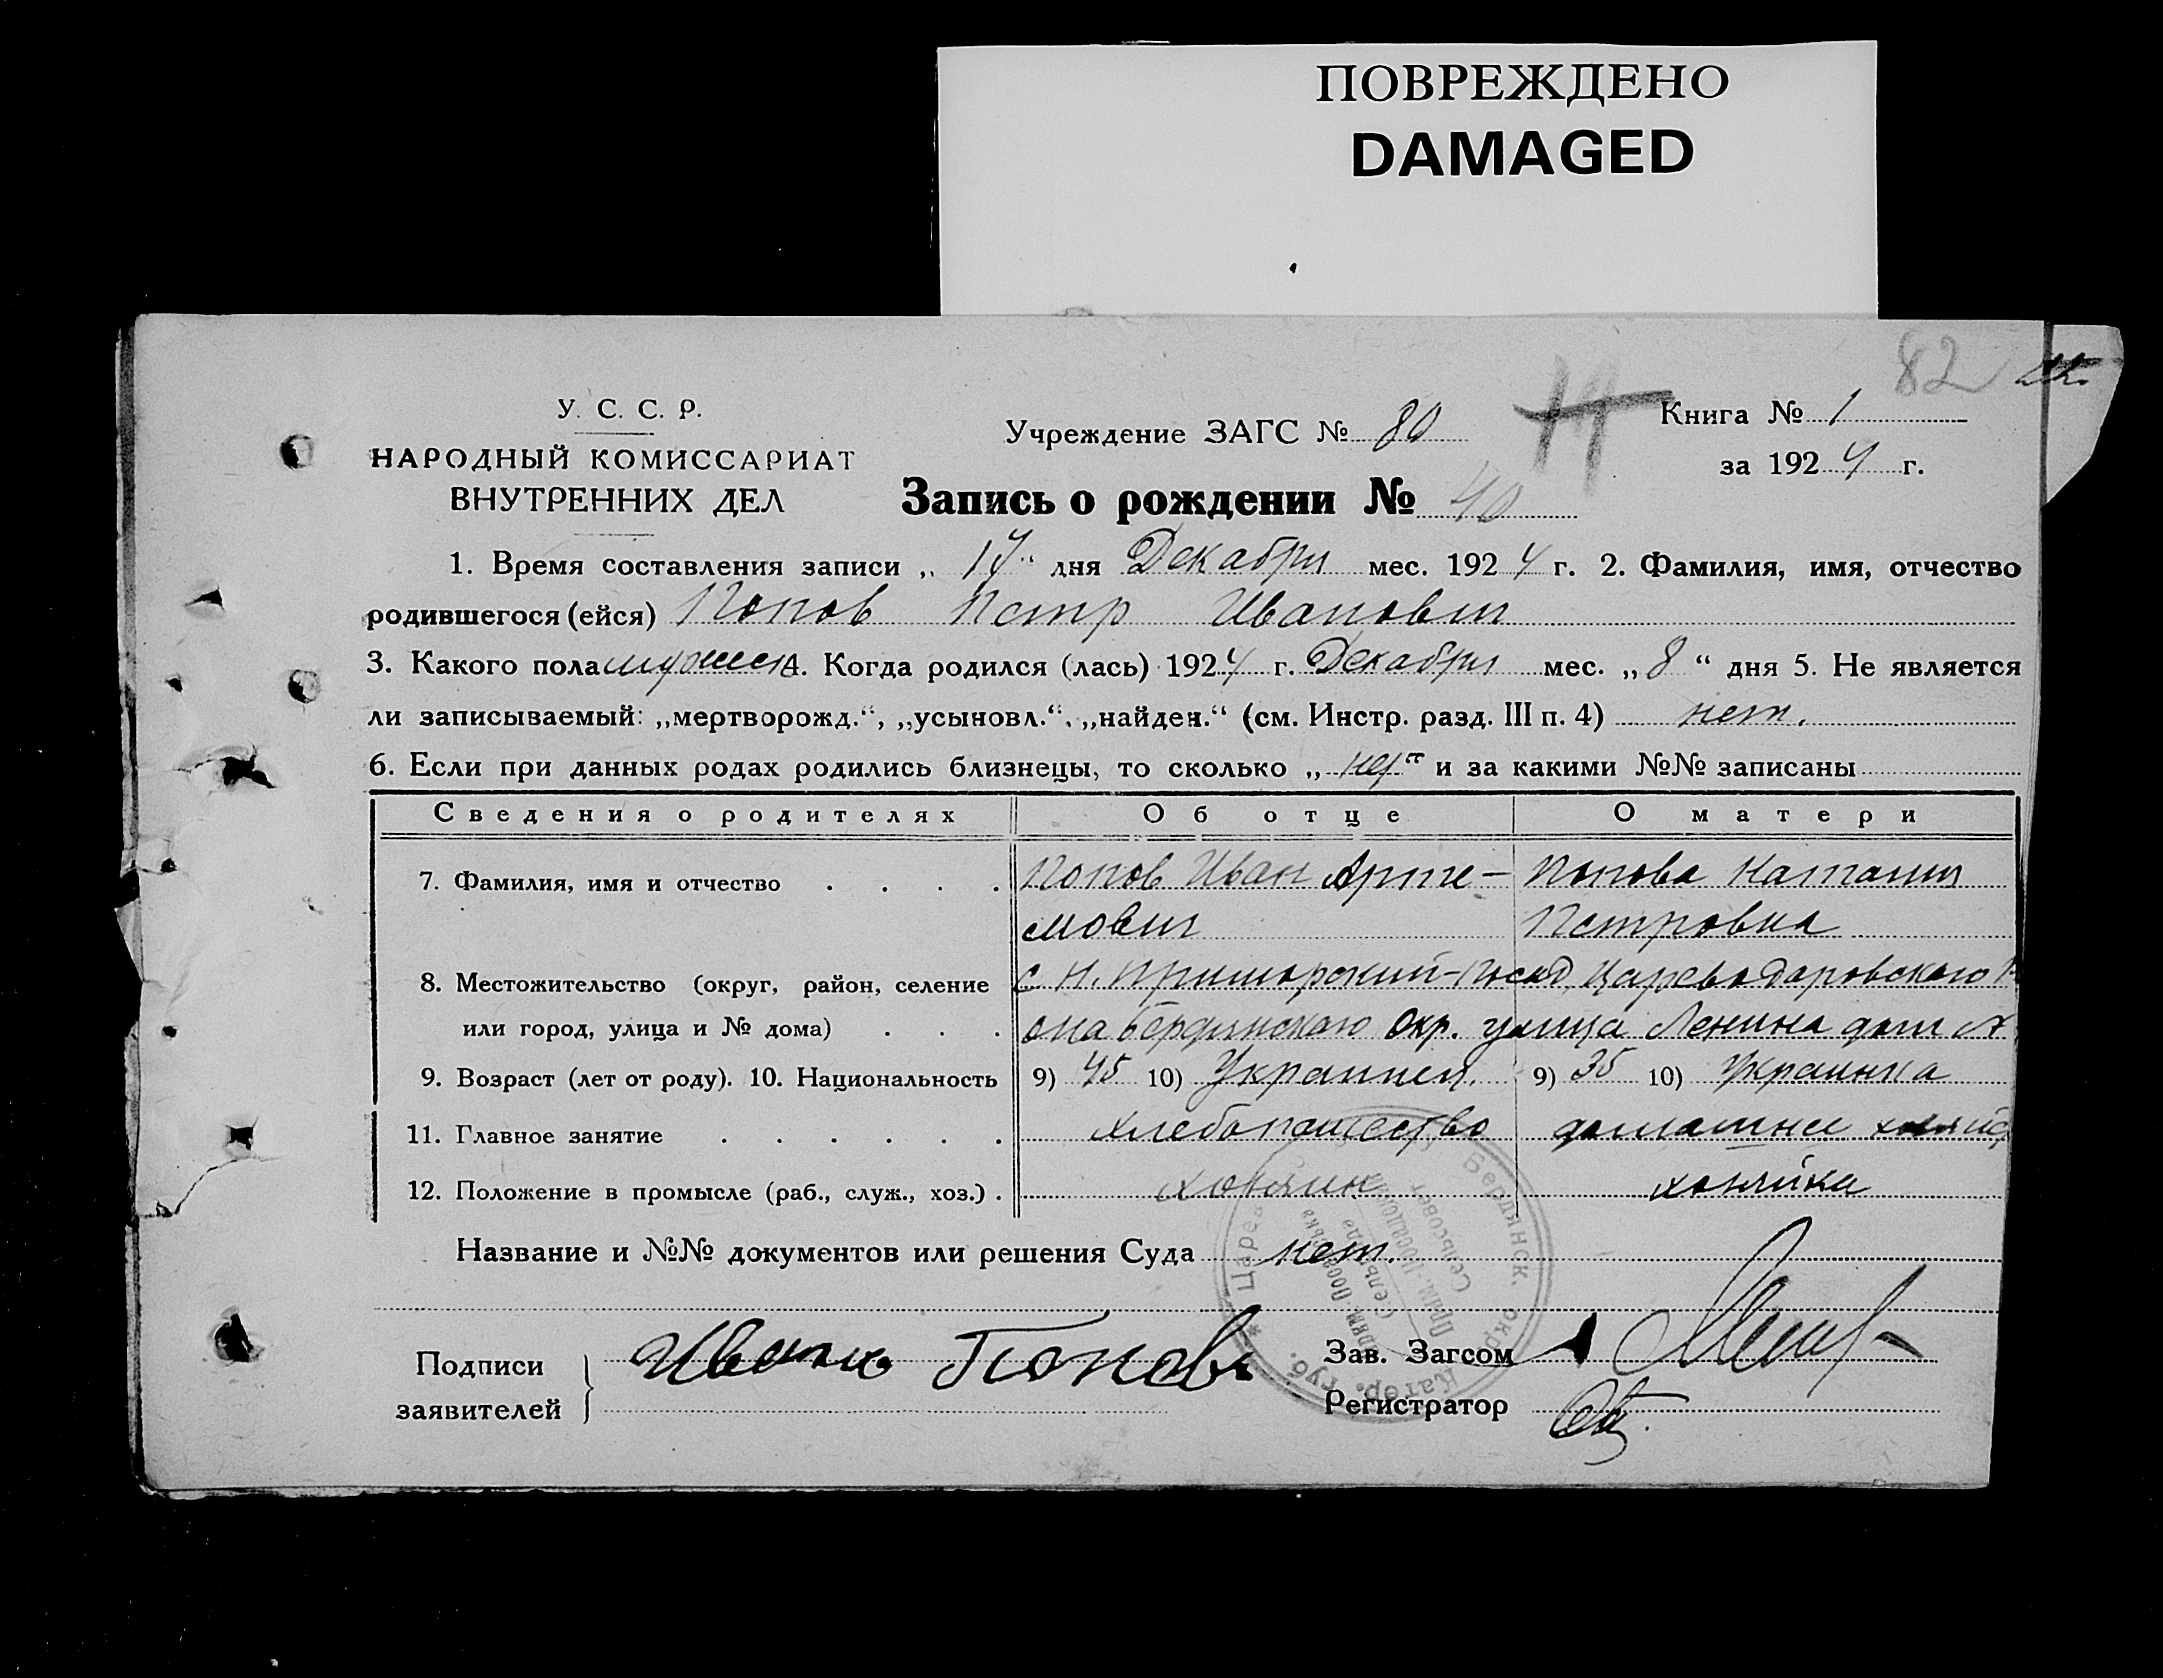 ПОВРЕЖДЕНО
DAMAGED
82
У. С. С. Р.
НАРОДНЫЙ КОМИССАРИАТ
ВНУТРЕННИХ ДЕЛ
Учреждение ЗАГС № 80
Книга № 1
за 1924 г.
Запись о рождении № 40
1. Время составления записи „17“ дня Декабря мес. 1924 г. 2. Фамилия, имя, отчество
родившегося (ейся) Попов Петр Иванович
3. Какого пола мужск 4. Когда родился (лась) 1924 г. Декабря мес. „8“ дня 5. Не является
ли записываемый: „мертворожд.“, „усыновл.“, „найден.“ (см. Инстр. разд. III п. 4) нет.
6. Если при данных родах родились близнецы, то сколько „нет“ и за какими №№ записаны
Сведения о родителях Об отце О матери
7. Фамилия, имя и отчество . . . . Попов Иван Арте- Попова Наталия
мович Петровна
8. Местожительство (округ, район, селение с. Н. Приморский-Посад, Цареводаровского р-
или город, улица и № дома) . . . она Бердянского Окр. улица Ленина дом №
9. Возраст (лет от роду). 10. Национальность 9) 45 10) Украинец. 9) 35 10) Украинка
11. Главное занятие . . . . . . хлебопашество домашнее хозяйс
12. Положение в промысле (раб., служ., хоз.) . хозяин хозяйка
Название и №№ документов или решения Суда нет.
Подписи
заявителей
Иванъ Поповъ
Зав. Загсом
Регистратор
Бердянск. окр. Катер. губ. * Царе
Прим. Посадський
Сельрада
Прим. Посадский
Сельсовет